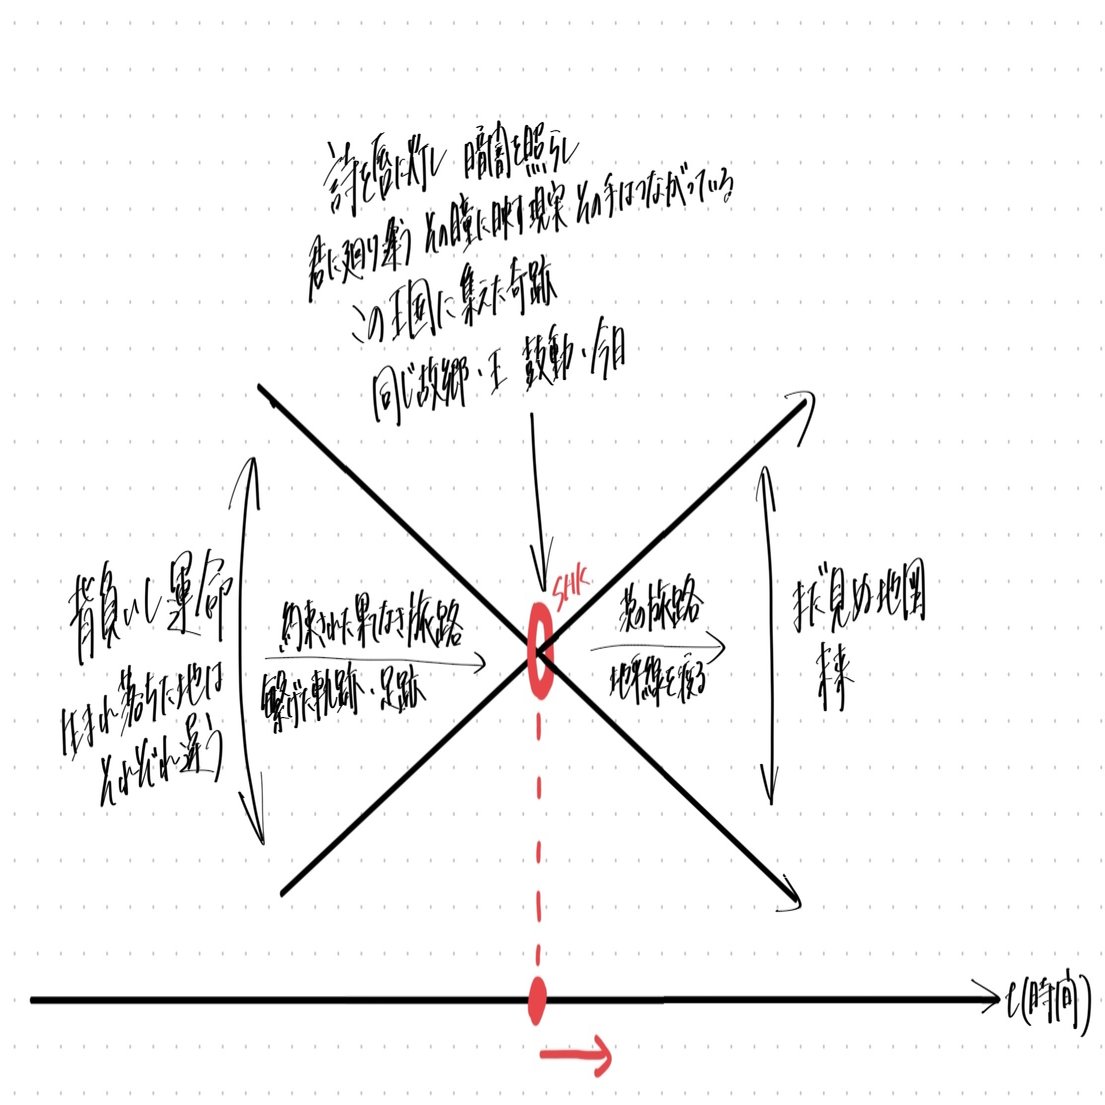 詩を唇に灯し 暗闇を照らし
君に廻り逢う その瞳に映す現実 その手はつながっている
この王国に集えた奇跡
同じ故郷・王 鼓動・今日
SHK
背負いし運命
生まれ落ちた地は
それぞれ違う
約束された果てなき旅路
繋げた軌跡・足跡
旅路
地平線を
まだ見ぬ地図
未来
t(時間)